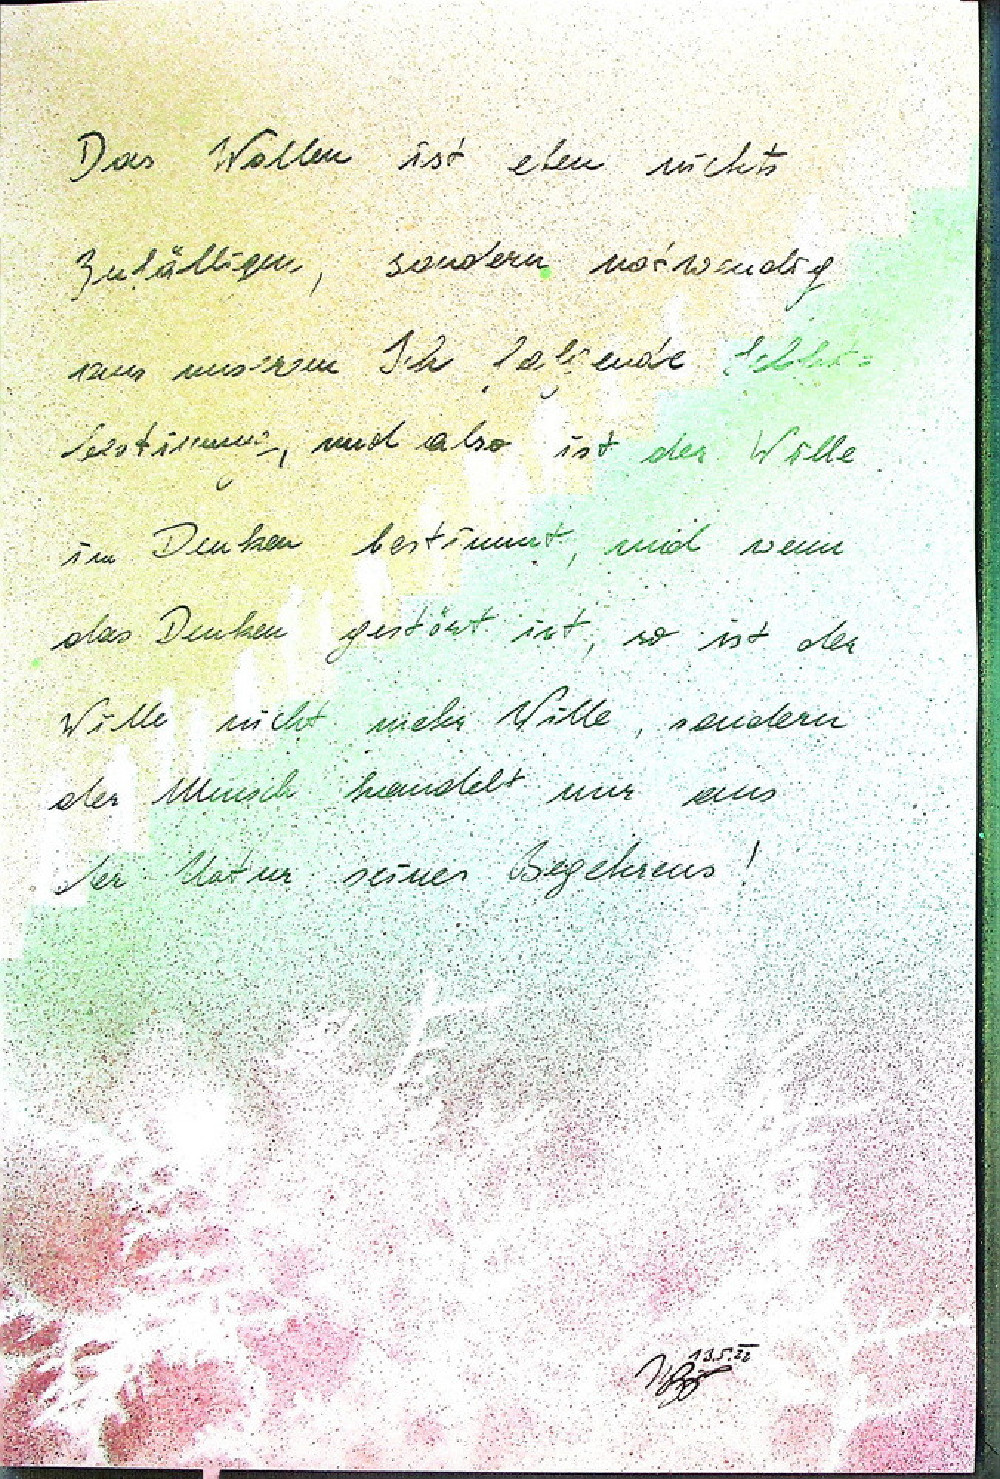 Das Wollen ist eben nichts
Zufälliges, sondern notwendig
aus unserem Ich folgende Selbst=
bestimmung, und also ist der Wille
im Denken bestimmt, und wenn
das Denken gestört ist, so ist der
Wille nicht mehr Wille, sondern
der Mensch handelt nur aus
der Natur seines Begehrens!
13.5.22